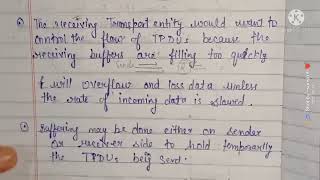 The receiving Transport entity would want to
control the flow of TPDUs because the
receiving buffers are filling too quickly
& will overflow and loss data unless
the rate of incoming data is slowed.
Buffering may be done either on sender
or receiver side to hold temporarily
the TPDUs being send.